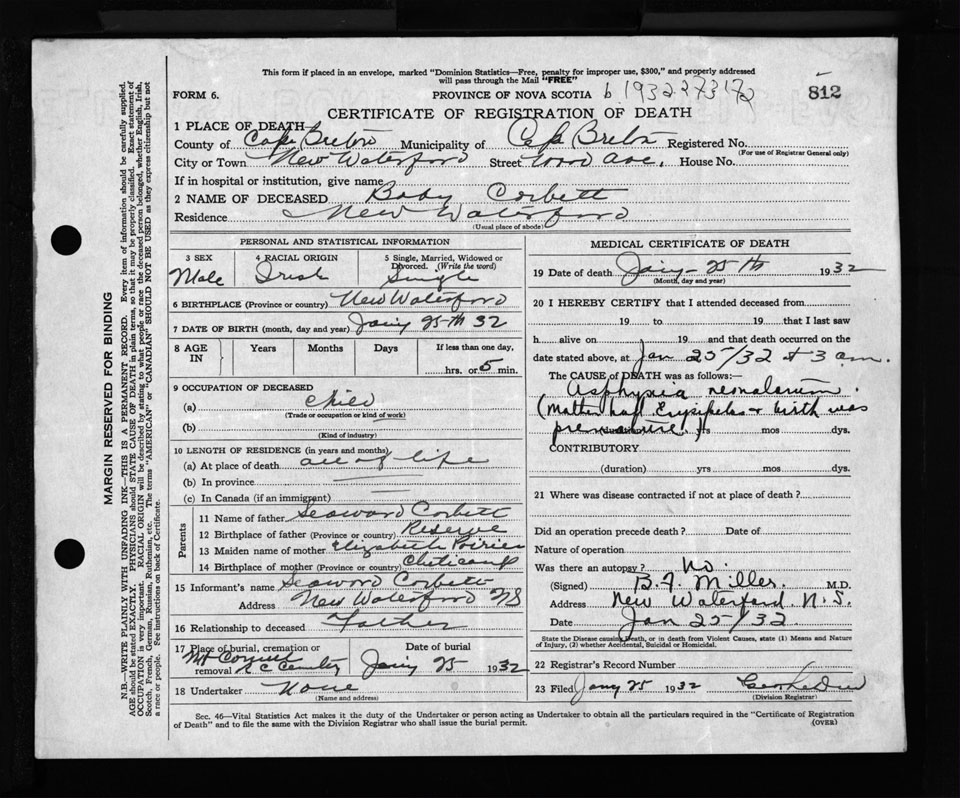 This form if placed in an envelope, marked "Dominion Statistics—Free, penalty for improper use, $300," and properly addressed
will pass through the Mail "FREE"
FORM 6. PROVINCE OF NOVA SCOTIA b 1932 273172 812
CERTIFICATE OF REGISTRATION OF DEATH
1 PLACE OF DEATH—
County of Cape Breton Municipality of Cape Breton Registered No.
(For use of Registrar General only)
City or Town New Waterford Street Ave. House No.
If in hospital or institution, give name
2 NAME OF DECEASED Baby Corbett
Residence New Waterford
(Usual place of abode)
PERSONAL AND STATISTICAL INFORMATION
3 SEX 4 RACIAL ORIGIN 5 Single, Married, Widowed or Divorced. (Write the word)
Male Irish Single
6 BIRTHPLACE (Province or country) New Waterford
7 DATE OF BIRTH (month, day and year) Jany 25th 32
8 AGE IN Years Months Days If less than one day,
hrs. or 5 min.
9 OCCUPATION OF DECEASED
(a) Child
(Trade or occupation or kind of work)
(b)
(Kind of industry)
10 LENGTH OF RESIDENCE (in years and months)
(a) At place of death all of life
(b) In province
(c) In Canada (if an immigrant)
Parents
11 Name of father Seaword Corbett
12 Birthplace of father (Province or country) Reserve
13 Maiden name of mother Elizabeth Poirier
14 Birthplace of mother (Province or country) Cheticamp
15 Informant's name Seaword Corbett
Address New Waterford NS
16 Relationship to deceased Father
17 Place of burial, cremation or removal Date of burial
Mt Carmel R C Cemetery Jany 25 1932
18 Undertaker None
(Name and address)
MEDICAL CERTIFICATE OF DEATH
19 Date of death Jany 25th 1932
(Month, day and year)
20 I HEREBY CERTIFY that I attended deceased from
19 to 19 that I last saw
h alive on 19 and that death occurred on the
date stated above, at Jan 25/32 at 3 am.
The CAUSE of DEATH was as follows:—
Asphyxia neonatorum.
(Mother had Erysipelas & birth was
premature)
(duration) yrs mos dys.
CONTRIBUTORY
(duration) yrs mos dys.
21 Where was disease contracted if not at place of death?
Did an operation precede death? Date of
Nature of operation
Was there an autopsy? No.
(Signed) B. F. Miller. M.D.
Address New Waterford. N.S.
Date Jan 25/32
State the Disease causing Death, or in death from Violent Causes, state (1) Means and Nature
of Injury, (2) whether Accidental, Suicidal or Homicidal.
22 Registrar's Record Number
23 Filed Jany 25 1932
(Division Registrar)
Sec. 46—Vital Statistics Act makes it the duty of the Undertaker or person acting as Undertaker to obtain all the particulars required in the "Certificate of Registration
of Death" and to file the same with the Division Registrar who shall issue the burial permit. (OVER)
MARGIN RESERVED FOR BINDING
N.B.—WRITE PLAINLY WITH UNFADING INK—THIS IS A PERMANENT RECORD. Every item of information should be carefully supplied.
AGE should be stated EXACTLY. PHYSICIANS should STATE CAUSE OF DEATH in plain terms, so that it may be properly classified. Exact statement of
OCCUPATION is very important. RACIAL ORIGIN will be described by stating to what people or race the deceased person belonged, whether English, Irish,
Scotch, French, German, Russian, Ruthenian, etc. The terms "AMERICAN" or "CANADIAN" SHOULD NOT BE USED as they express citizenship but not
a race or people. Fee instructions on back of Certificate.